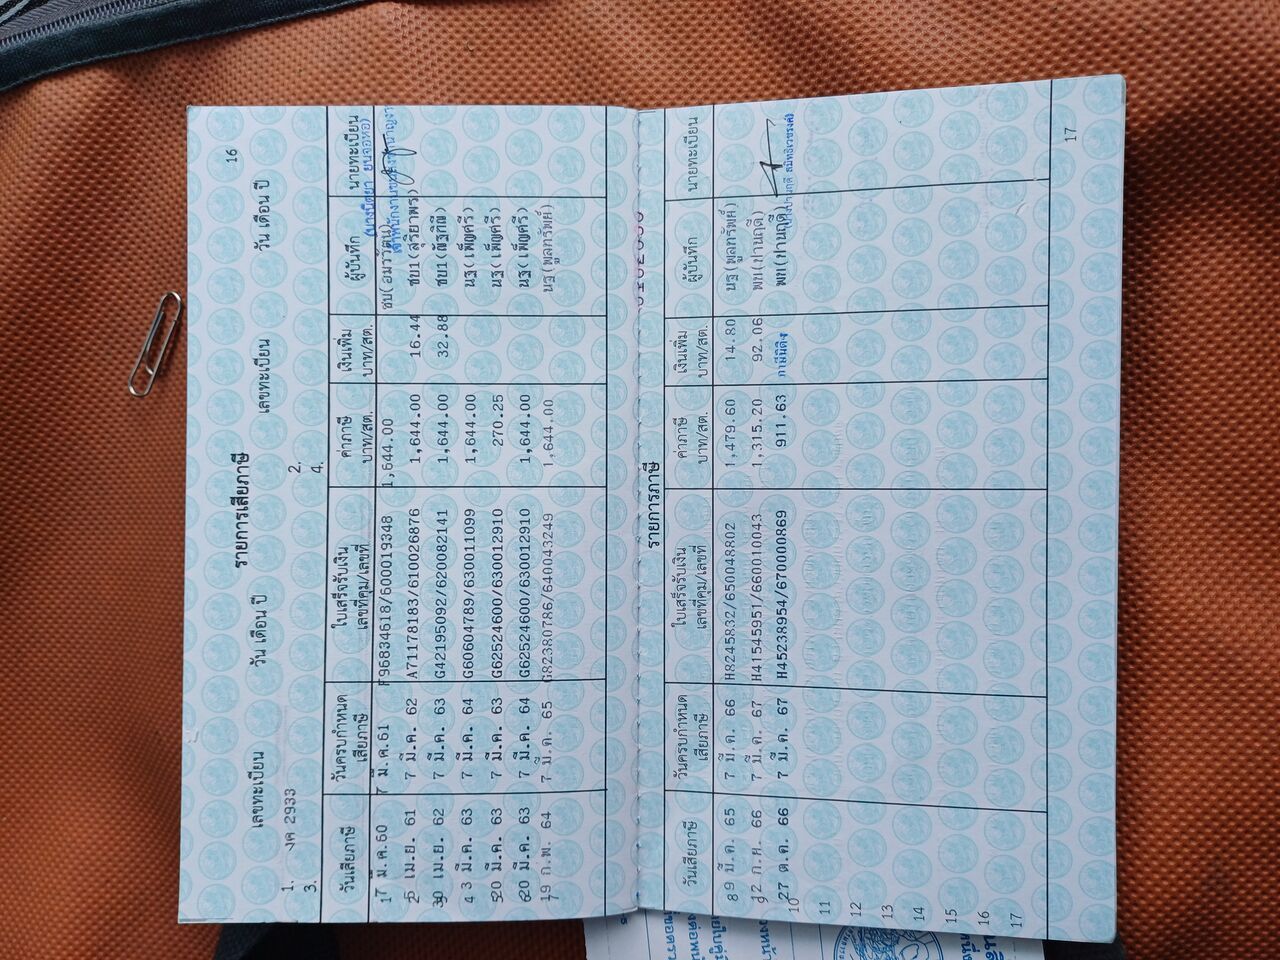 16
รายการเสียภาษี
เลขทะเบียน วัน เดือน ปี เลขทะเบียน วัน เดือน ปี
1. งค 2933 2.
3. 4.
วันเสียภาษี วันครบกำหนดเสียภาษี ใบเสร็จรับเงิน เลขที่คุม/เลขที่ ค่าภาษี บาท/สต. เงินเพิ่ม บาท/สต. ผู้บันทึก นายทะเบียน
1 7 มี.ค.60 7 มี.ค.61 F96834618/600019348 1,644.00 ชบ(อมรวัฒน์)
2 5 เม.ย. 61 7 มี.ค. 62 A71178183/610026876 1,644.00 16.44 ชบ1(สุริยาพร)
3 30 เม.ย. 62 7 มี.ค. 63 G42195092/620082141 1,644.00 32.88 ชบ1(ณัฐกิณี)
4 3 มี.ค. 63 7 มี.ค. 64 G60604789/630011099 1,644.00 นฐ(เพ็ญศรี)
5 20 มี.ค. 63 7 มี.ค. 63 G62524600/630012910 270.25 นฐ(เพ็ญศรี)
6 20 มี.ค. 63 7 มี.ค. 64 G62524600/630012910 1,644.00 นฐ(เพ็ญศรี)
7 19 ก.พ. 64 7 มี.ค. 65 G82380786/640043249 1,644.00 นฐ(พูลทรัพย์)
รายการภาษี
วันเสียภาษี วันครบกำหนดเสียภาษี ใบเสร็จรับเงิน เลขที่คุม/เลขที่ ค่าภาษี บาท/สต. เงินเพิ่ม บาท/สต. ผู้บันทึก นายทะเบียน
8 9 มี.ค. 65 7 มี.ค. 66 H8245832/650048802 1,479.60 14.80 นฐ(พูลทรัพย์)
9 12 ก.ค. 66 7 มี.ค. 67 H41545951/660010043 1,315.20 92.06 พท(ปานฤดี)
10 27 ต.ค. 66 7 มี.ค. 67 H45238954/670000869 911.63 พท(ปานฤดี)
11
12
13
14
15
16
17
17